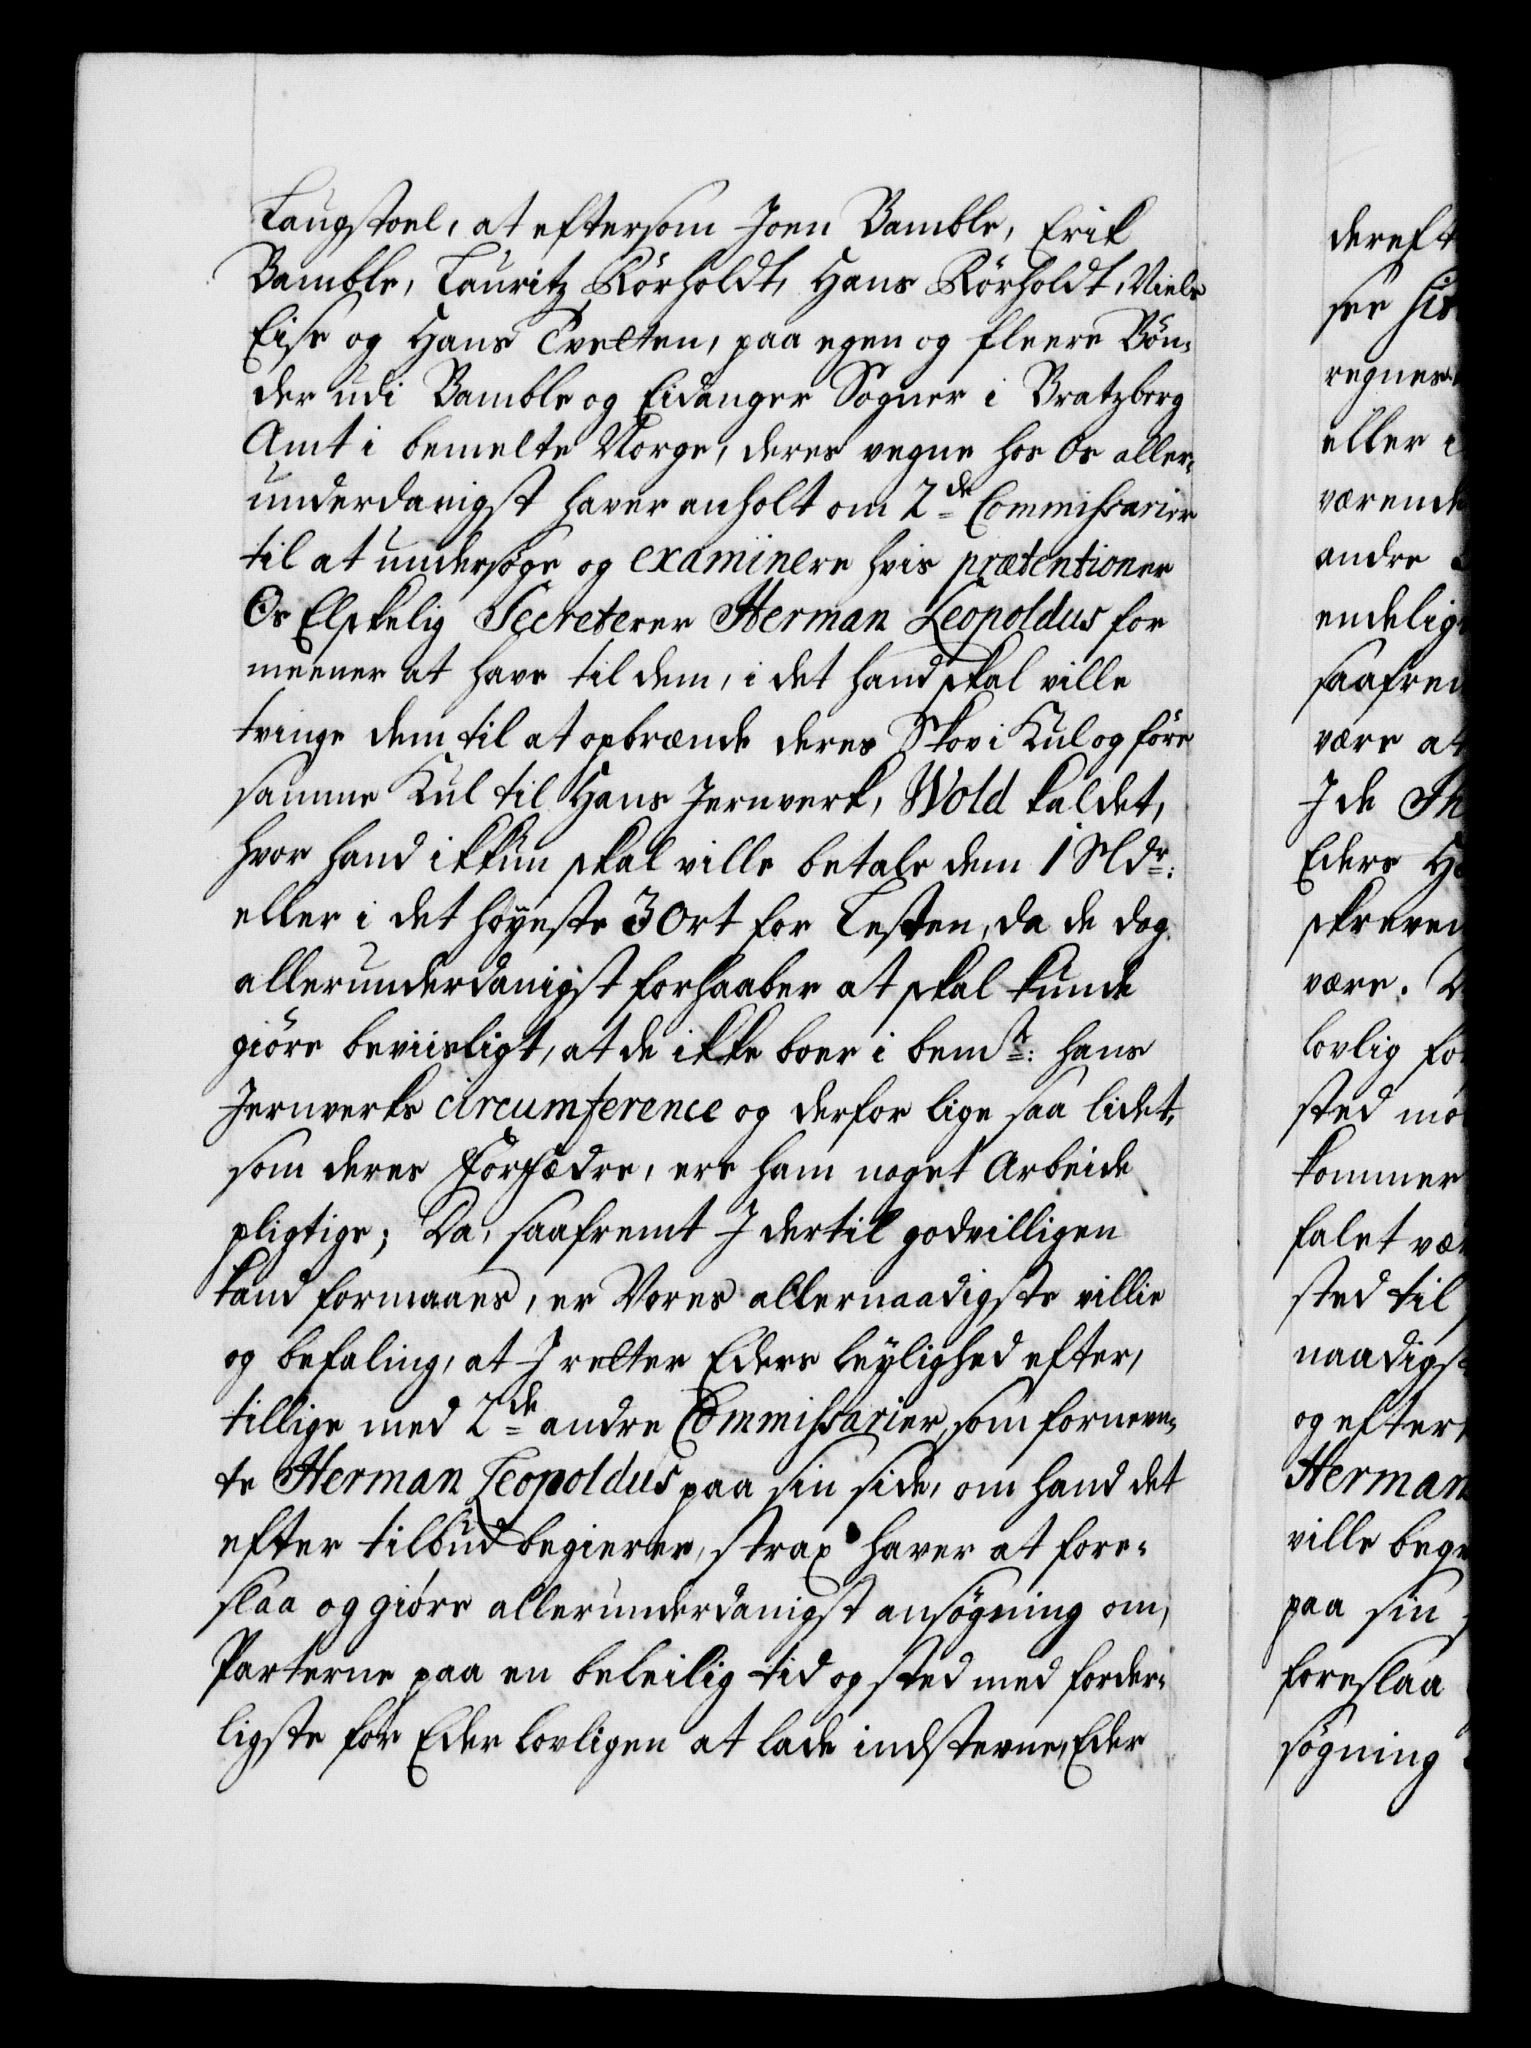 Laugstoel, at eftersom Joen Bamble, Erik
Bamble, Lauritz Rörholdt, Hans Rörholdt, Niels
Eise og Hans Tvetten, paa egen og fleere Bön-
der udi Bamble og Eidanger Sogner i Bratzberg
Amt i bemelte Norge, deres vegne hos Os aller-
underdanigst haver anholt om 2de Commissarier
til at undersøge og examinere hvis prætentioner
Os Elskelig Secreterer Herman Leopoldus for
meener at have til dem, i det hand skal ville
tvinge dem til at opbrænde deres Skov i Kul og före
samme Kul til Hans Jernverk, Wold kaldet,
hvor hand ikkun skal ville betale dem 1 Sldr:
eller i det høyeste 3 Ort for Lesten, da de dog
allerunderdanigst forhaaber at skal kunde
giöre beviisligt, at de ikke boer i bemte: hans
Jernverks circumference og derfor lige saa lidet,
som deres Forfædre, ere ham noget Arbeide
pligtige; Da, saafremt I dertil godvilligen
kand formaaes, er Vores allernaadigste villie
og befaling, at I retter Eders leylighed efter,
tillige med 2de andre Commissarier, som fornevn-
te Herman Leopoldus paa sin side, om hand det
efter tilbud begierer, strax haver at fore-
slaa og giöre allerunderdanigst ansögning om,
Parterne paa en beleilig tid og sted med forder-
ligste for Eder lovligen at lade indstevne, Eder
dereft
see his
regner
eller i
værende
andre
endelig
saafrem
være at
I de Th
Eders H
skreven
være. D
lovlig for
sted mø
kommer
falet vær
sted til
naadigst
og efter
Herman
ville begi
paa sin s
foreslaa
søgning